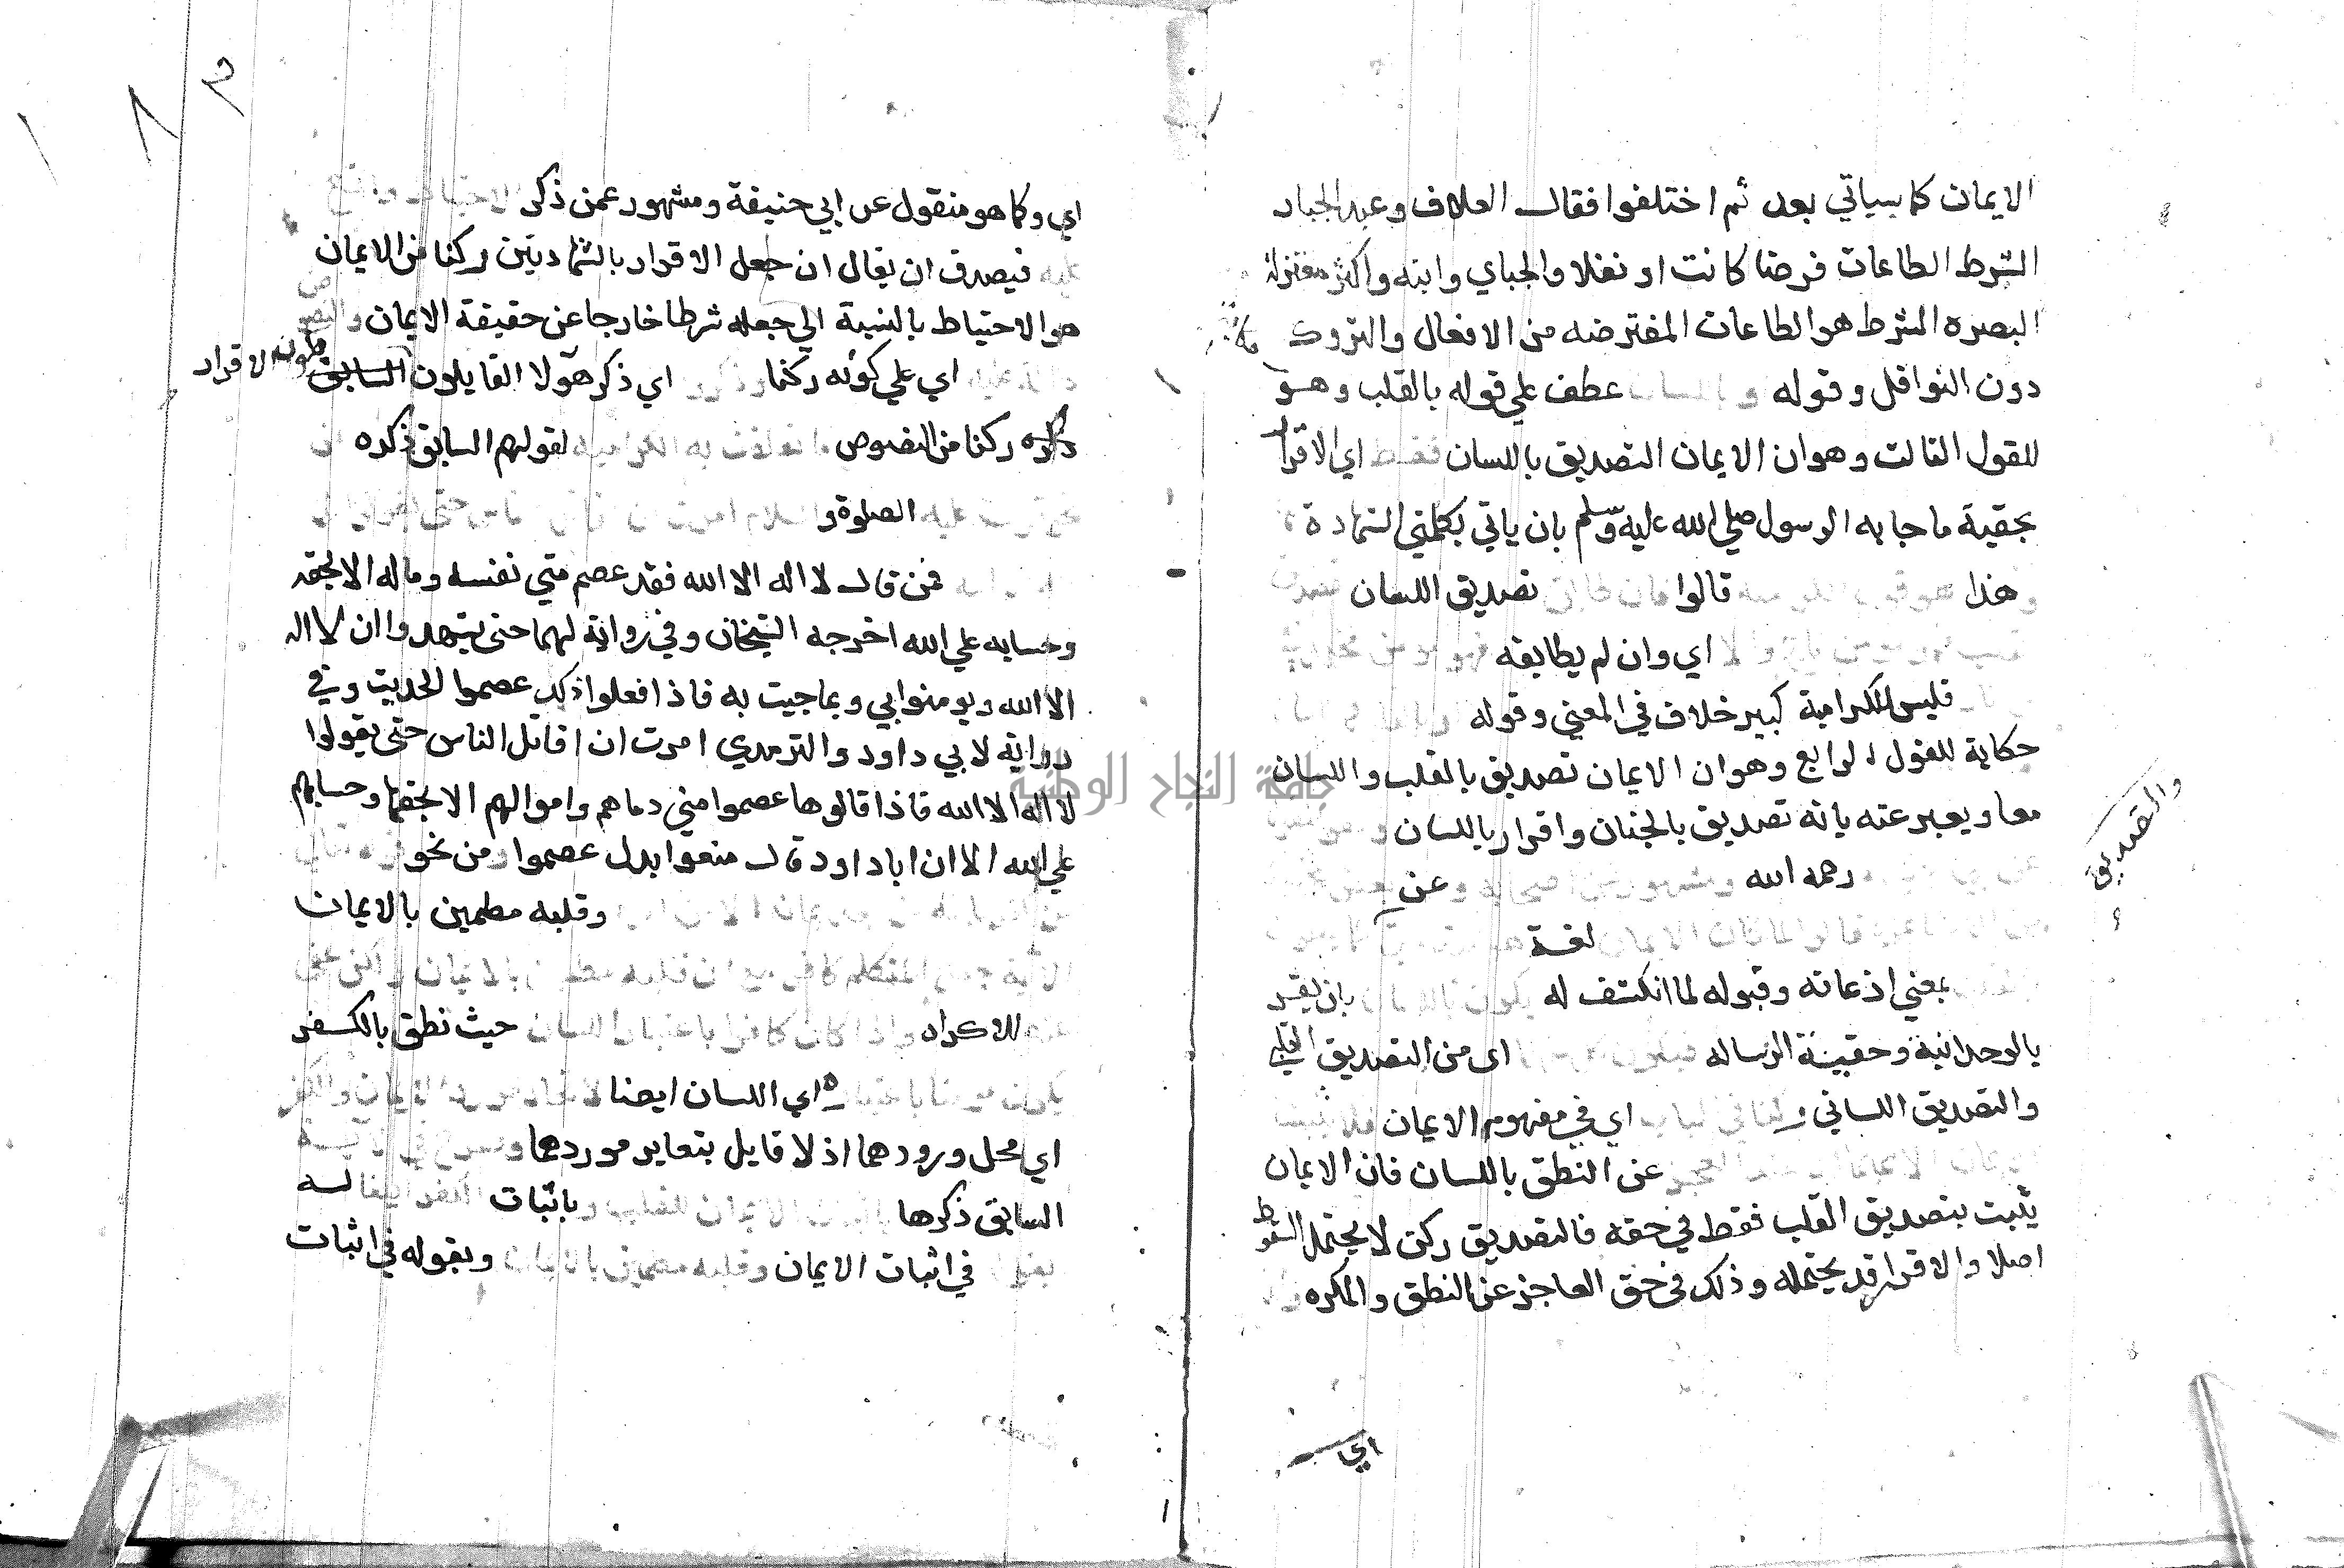 الايمان كما سياتي بعد ثم اختلفوا فقال العلاف وعبد الجبار
الشرط الطاعات فرضا كانت او نفلا والجباي وابنه واكثر معتزلة
البصره الشرط هو الطاعات المفترضه من الافعال والتروك
دون النوافل وقوله عطف علي قوله بالقلب وهو
للقول الثالث وهوان الايمان التصديق باللسان فقط اي الاقرار
بحقية ما جا به الرسول صلي الله عليه وسلم بان ياتي بكلمتي الشهادة
هذا قالوا تصديق اللسان
اي وان لم يطابقه
فليس للكرامية كبير خلاف في المعني وقوله
حكاية للقول الرابع وهوان الايمان تصديق بالقلب واللسان
معا ويعبر عنه بانه تصديق بالجنان واقرار باللسان
رحمه الله عن
لغة
بمعني اذعانه وقبوله لما انكشف له بان يقر
بالوحدانية وحقيقة الرساله اى من التصديق القلبي
والتصديق اللساني اي في مفهوم الايمان
عن النطق باللسان فان الايمان
يثبت بتصديق القلب فقط في حقه فالتصديق ركن لا يحتمل السقوط
اصلا والاقرار قد يحتمله وذلك في حق العاجز عن النطق والمكره
والتصديق
اي
اي وكما هو منقول عن ابي حنيفة ومشهور عمن ذكر
فيصدق ان يقال ان جعل الاقرار بالشهادتين ركنا من الايمان
هو الاحتياط بالنسبة الي جعله شرطا خارجا عن حقيقة الايمان
اي علي كونه ركنا اي ذكر هولا القايلون السابق الاقرار
ذكره ركنا من النصوص لقولهم السابق ذكره
الصلوة و
فمن قال لا اله الا الله فقد عصم مني نفسه وماله الا بحقه
وحسابه علي الله اخرجه الشيخان وفي رواية لهما حتى يشهدوا ان لا اله
الا الله ويومنوا بي وبما جيت به فاذا فعلوا ذلك عصموا الحديث وفي
رواية لابي داود والترمدي امرت ان اقاتل الناس حتى يقولوا
لا اله الا الله فاذا قالوها عصموا مني دماهم واموالهم الا بحقها وحسابهم
علي الله الا ان ابا داود قال منعوا بدل عصموا ومن نحو
وقلبه مطمين بالايمان
للاكراه حيث نطق بالكفر
اي اللسان ايضا
اي محل ورودهما اذ لا قايل بتغاير موردهما
السابق ذكرها باثبات له
في اثبات الايمان وبقوله في اثبات
جامعة النجاح الوطنية